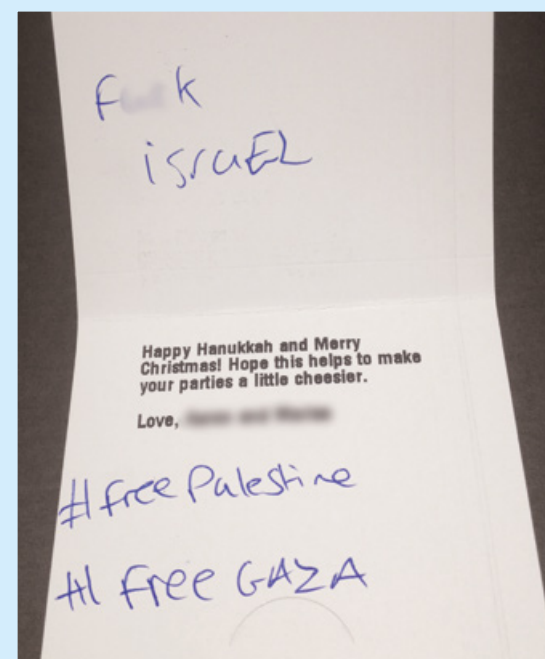 F k
israEL
Happy Hanukkah and Merry
Christmas! Hope this helps to make
your parties a little cheesier.
Love,
#free Palestine
#Free GAZA